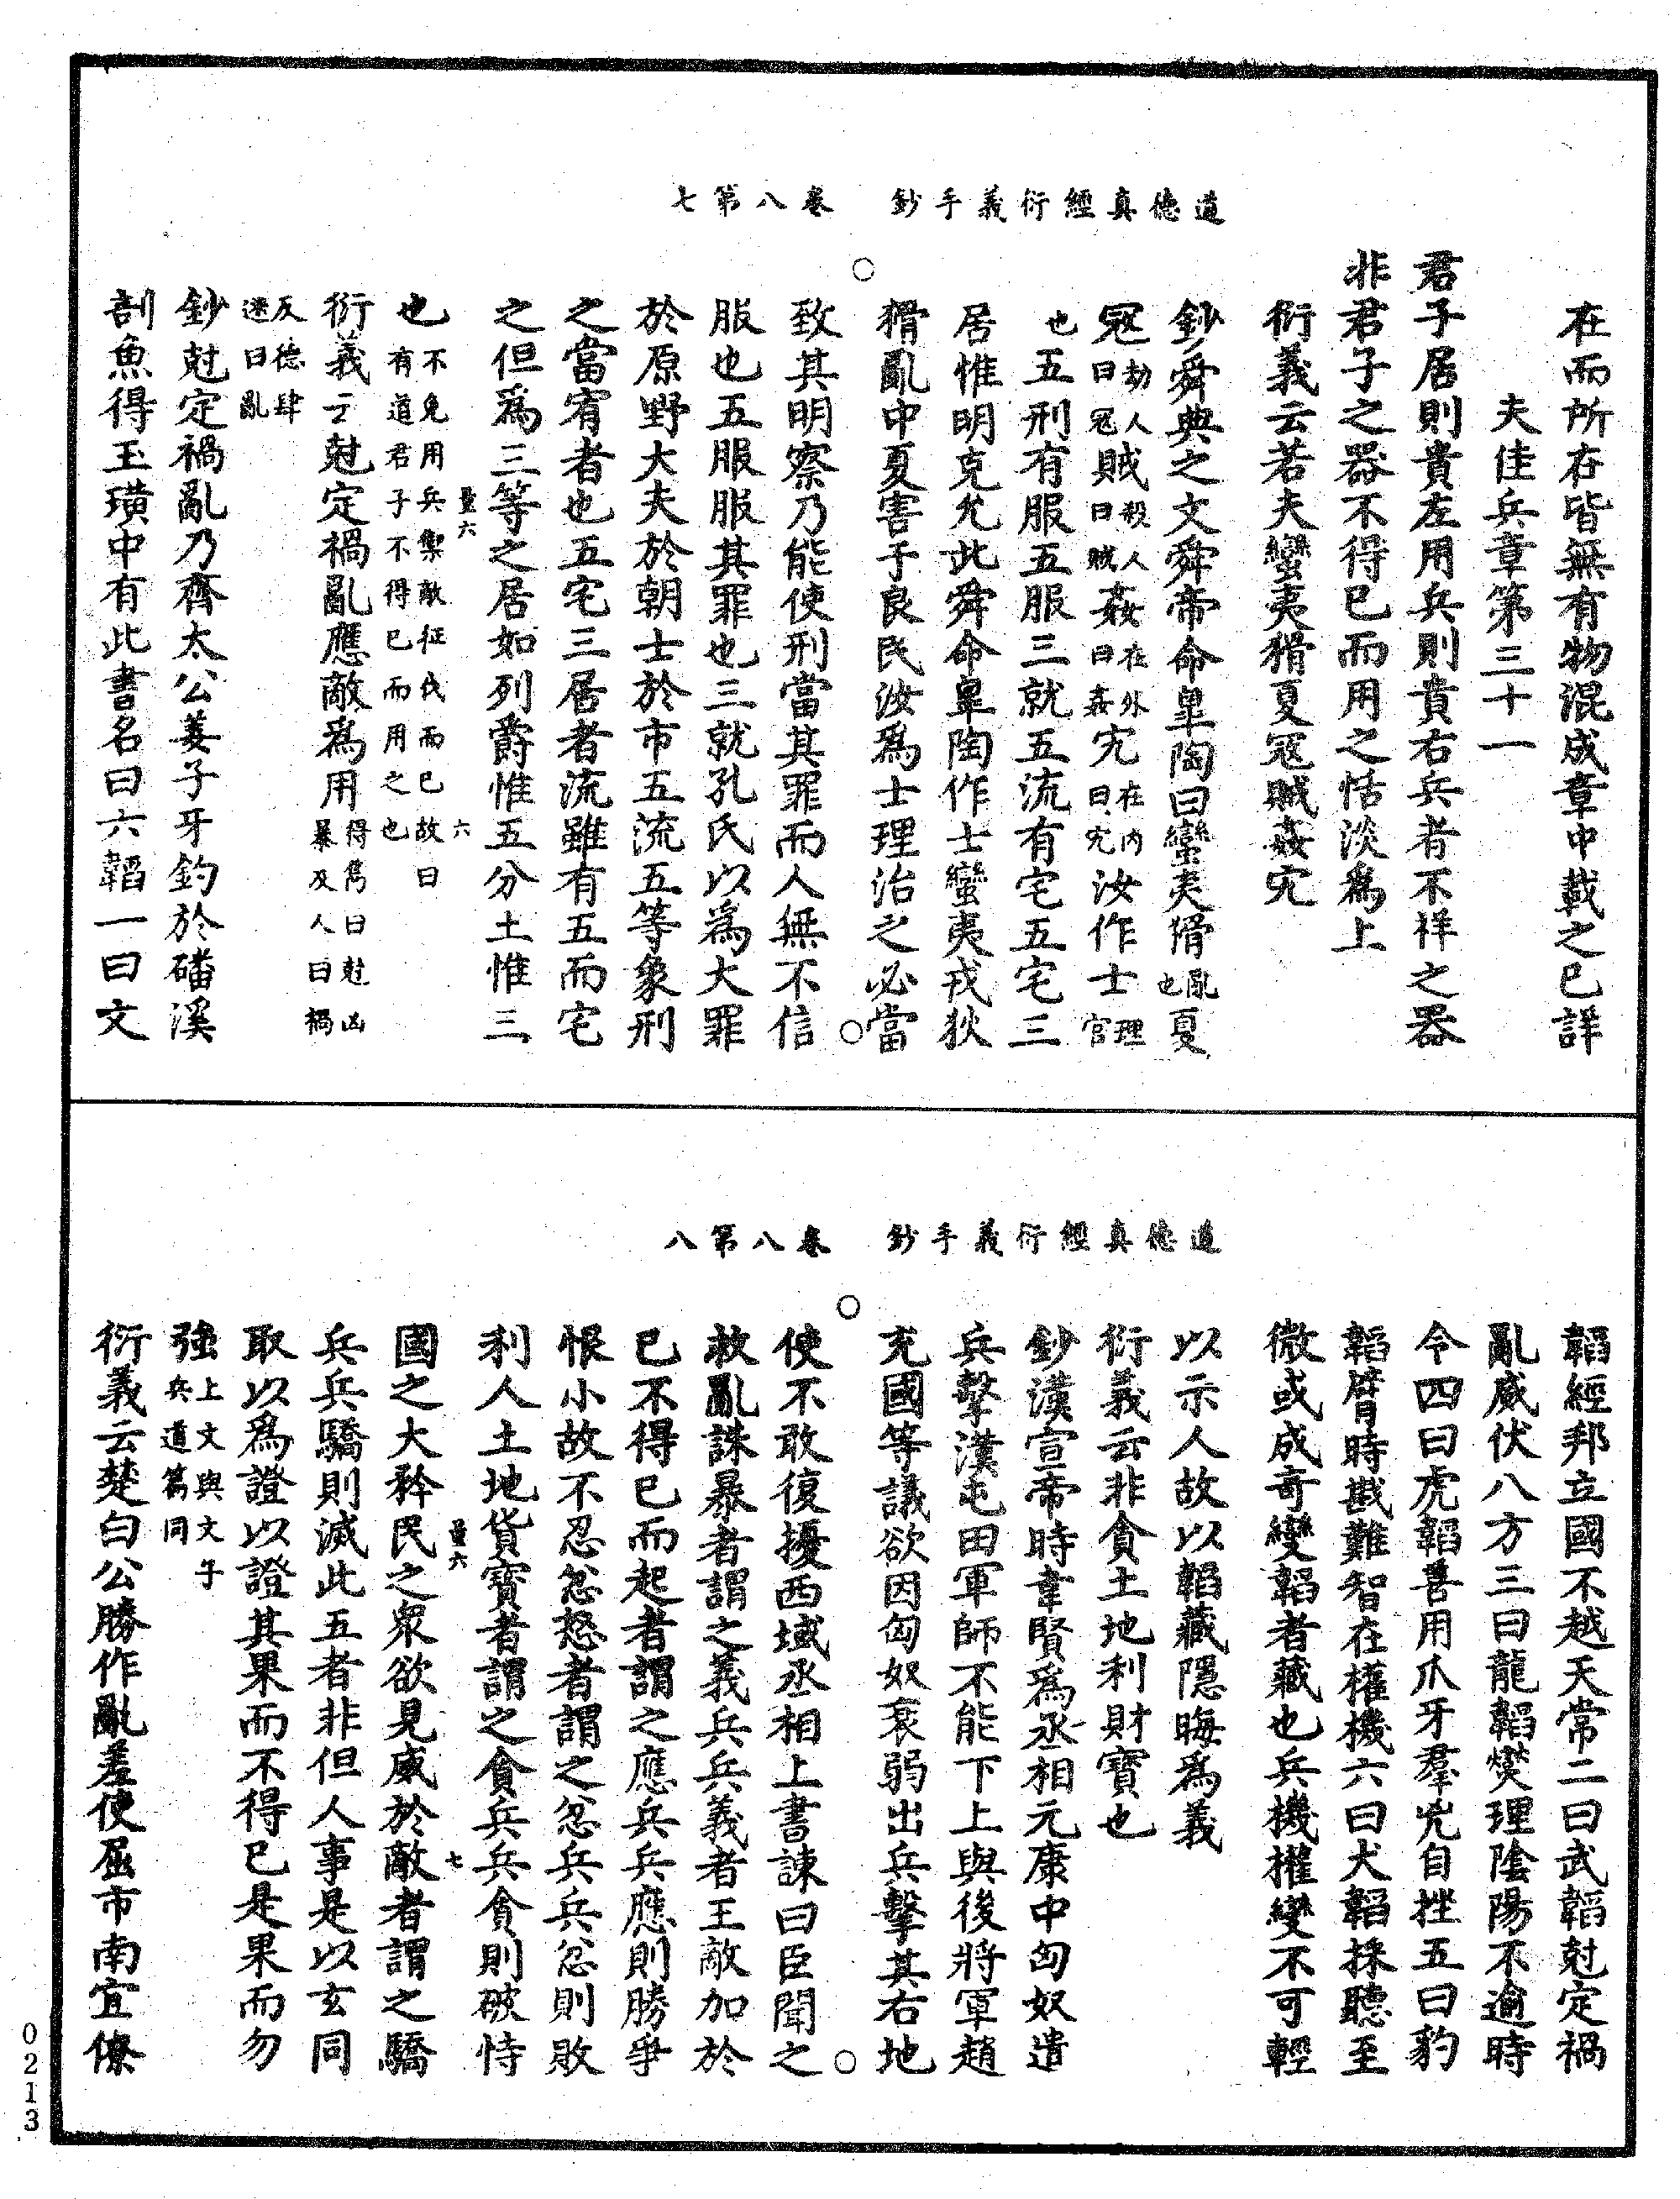 道德真經衍義手鈔 卷八第七
在而所在皆無有物混成章中載之已詳
夫佳兵章第三十一
君子居則貴左用兵則貴右兵者不祥之器
非君子之器不得已而用之恬淡為上
衍義云若夫蠻夷猾夏寇賊姦宄
鈔舜典之文舜帝命臯陶曰蠻夷猾亂也夏
寇劫人曰寇賊殺人曰賊姦在外曰姦宄在內曰宄汝作士理官
也五刑有服五服三就五流有宅五宅三
居惟明克允此舜命臯陶作士蠻夷戎狄
猾亂中夏害于良民汝為士理治之必當
致其明察乃能使刑當其罪而人無不信
服也五服服其罪也三就孔氏以為大罪
於原野大夫於朝士於市五流五等象刑
之當宥者也五宅三居者流雖有五而宅
之但為三等之居如列爵惟五分土惟三
量六 六
也不免用兵禦敵征伐而已故曰有道君子不得已而用之也
衍義云尅定禍亂應敵為用得雋曰尅凶暴及人曰禍
反德肆逆曰亂
鈔尅定禍亂乃齊太公姜子牙釣於磻溪
剖魚得玉璜中有此書名曰六韜一曰文
道德真經衍義手鈔 卷八第八
韜經邦立國不越天常二曰武韜尅定禍
亂威伏八方三曰龍韜爕理陰陽不逾時
令四曰虎韜善用爪牙羣兇自挫五曰豹
韜臂時戡難智在權機六曰犬韜採聽至
微或成奇變韜者藏也兵機權變不可輕
以示人故以韜藏隱晦為義
衍義云非貪土地利財寶也
鈔漢宣帝時韋賢為丞相元康中匈奴遣
兵擊漢屯田軍師不能下上與後將軍趙
充國等議欲因匈奴衰弱出兵擊其右地
使不敢復擾西域丞相上書諫曰臣聞之
救亂誅暴者謂之義兵兵義者王敵加於
已不得已而起者謂之應兵兵應則勝爭
恨小故不忍忿怒者謂之忿兵兵忿則敗
利人土地貨寶者謂之貪兵兵貪則破恃
量六 七
國之大矜民之眾欲見威於敵者謂之驕
兵兵驕則滅此五者非但人事是以玄同
取以為證以證其果而不得已是果而勿
強上文與文子兵道篇同
衍義云楚白公勝作亂差使屈市南宜僚
0213